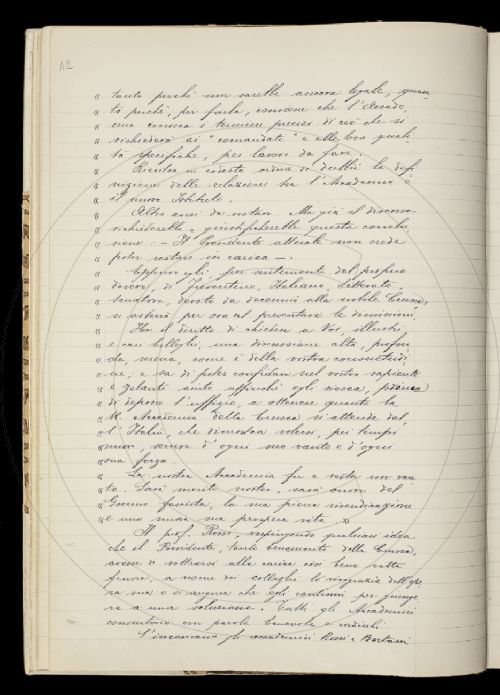 42
« tanto perchè non sarebbe ancora legale, quan-
« to perchè, per farla, conviene che l'Accade-
« mia conosca i termini precisi di ciò che si
« richiederà ai "comandati" e alle loro quali-
« tà specifiche, pei lavori da fare.
« Rientra in codesto ordine di dubbii la defi-
« nizione delle relazioni tra l'Accademia e
« il nuovo Istituto.
« Altro avrei da notare. Ma già il discorso
« richiederebbe e giustificherebbe questa conclu-
« sione: — Il Presidente attuale non crede
« poter restare in carica —.
« Eppure egli, per sentimento del proprio
« dovere, di Fiorentino, Italiano, Letterato,
« Senatore, devoto da decenni alla nobile Crusca,
« si asterrà per ora dal presentare le dimissioni.
« Ha il diritto di chiedere a Voi, illustri
« e cari colleghi, una discussione alta, profon-
« da, serena, come è della vostra consuetudi-
« ne; e sa di poter confidare nel vostro sapiente
« e zelante aiuto affinchè egli possa,
« di deporre l'uffizio, a ottenere quanto la
« R. Accademia della Crusca si attende dal-
« l'Italia, che dimostra volersi, pei tempi
« nuovi, senza d'ogni suo vanto e d'ogni
« sua forza.
« La nostra Accademia fu e resta un van-
« to. Sarà merito nostro, sarà onore del
« Governo fascista, la sua piena rivendicazione
« e una nuova sua prospera vita. »
Il prof. Rossi, respingendo qualsiasi idea
che il Presidente, tanto benemerito della Crusca,
avesse di sottrarsi alla carica così bene retta
finora, a nome dei colleghi lo ringrazia dell'ope-
ra sua e si augura che egli continui per giunge-
re a una soluzione. Tutti gli Accademici
consentono con parole benevole e cordiali.
S'incaricano gli accademici Rossi e Bertacci